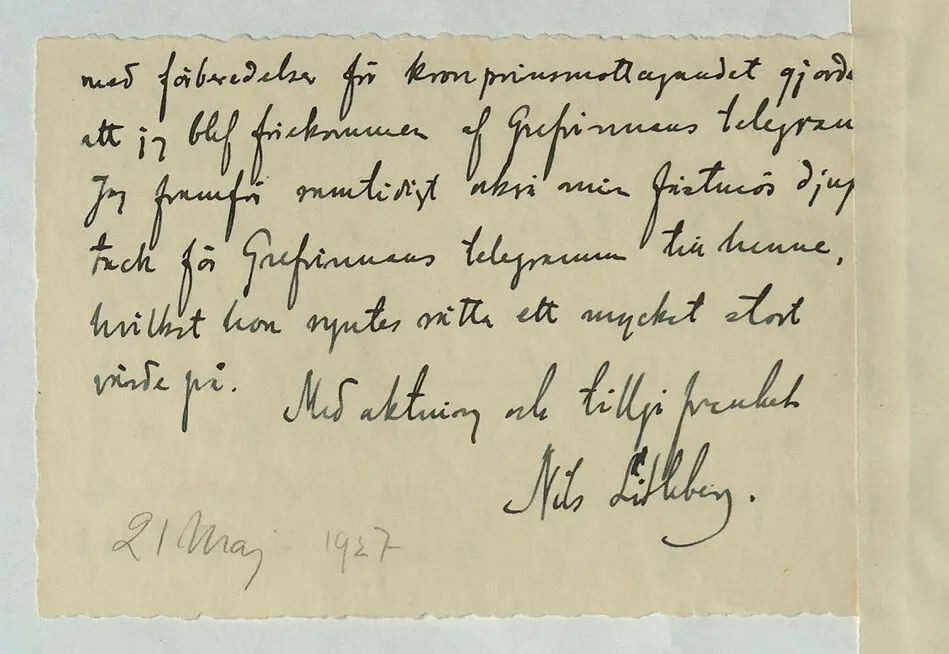 med förberedelser för kronprinsmottagandet gjorde
att jag blef förekommen af Grefvinnans telegram
Jag framför samtidigt också min fästmös djup
tack för Grefvinnans telegramm till henne,
hvilket hon syntes sätta ett mycket stort
värde på.
Med aktning och tillgifvenhet
Nils
21 Maj 1927